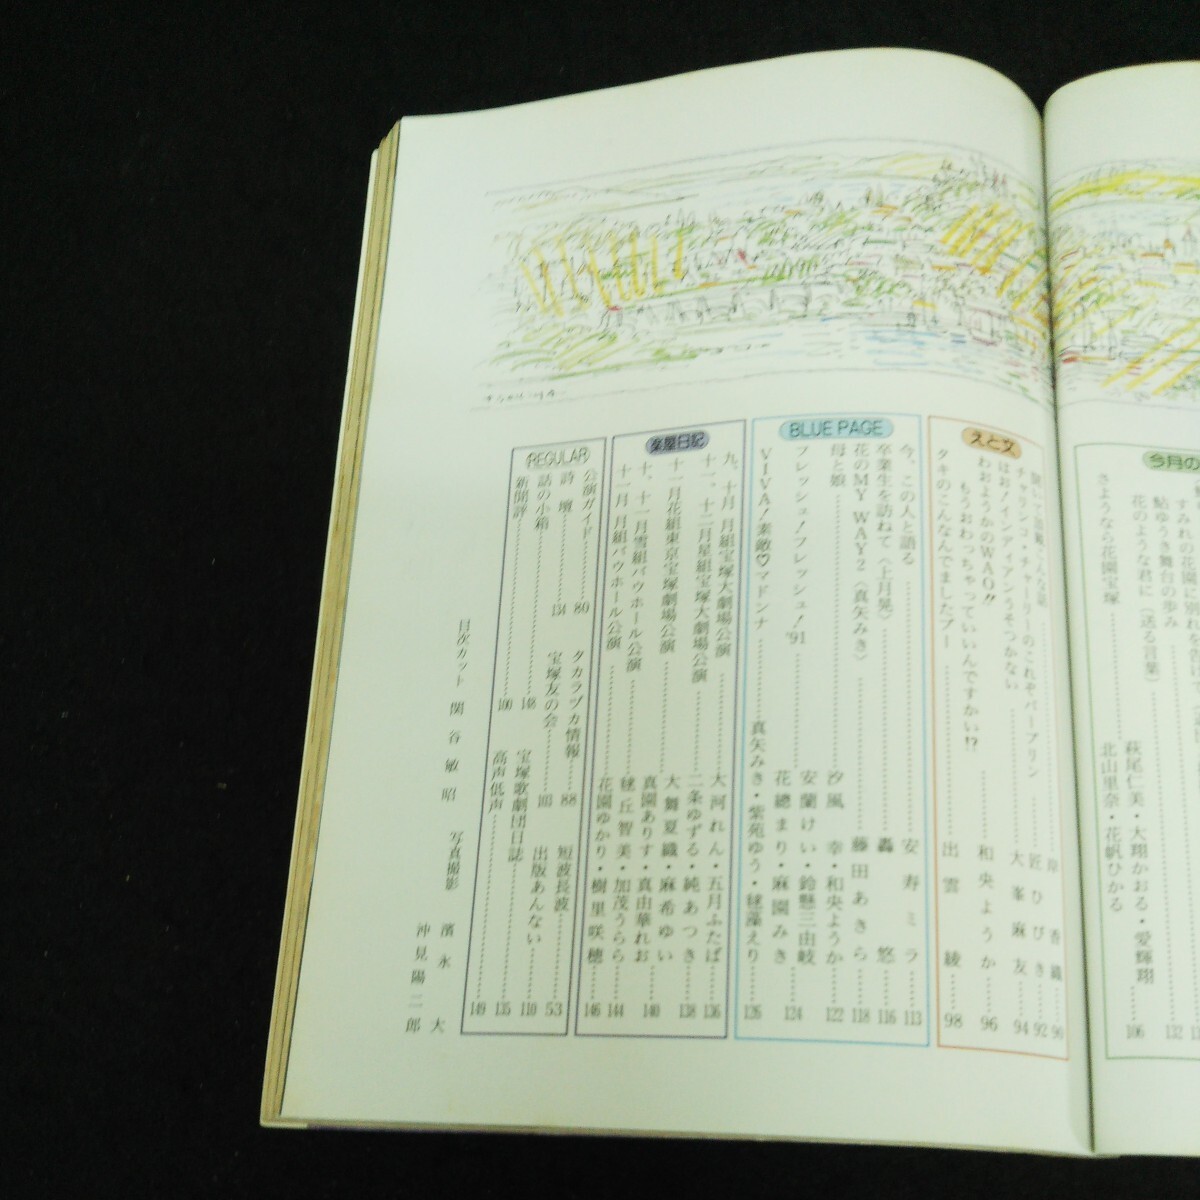 今月の
すみれの花園に別れを告げて
鮎ゆうき舞台の歩み
132
花のような君に（送る言葉）
萩尾仁美・大翔かおる・愛輝翔
北山里奈・花帆ひかる
106
さようなら花園宝塚
えと文
岸香織 90
チャランコ・チャーリーのこれぞパープリン 匠ひびき 92
はお！インディアンうそつかない 大峯麻友 94
わおようかのWAO!! 和央ようか 96
もうおわっちゃっていいんですかい!?
タキのこんなんでましたプー 出雲綾 98
BLUE PAGE
今、この人と語る 安寿ミラ 113
卒業生を訪ねて〈上月晃〉 轟悠 116
花のMY WAY2〈真矢みき〉 藤田あきら 118
母と娘 汐風幸・和央ようか 122
フレッシュ！フレッシュ！'91 安蘭けい・鈴懸三由岐
花總まり・麻園みき 124
VIVA！素敵♡マドンナ 真矢みき・紫苑ゆう・毬藻えり 126
楽屋日記
九、十月 月組宝塚大劇場公演 大河れん・五月ふたば 136
十一、十二月星組宝塚大劇場公演 二条ゆずる・純あつき 138
十一月花組東京宝塚劇場公演 大舞夏織・麻希ゆい
真園ありす・真由華れお 140
十、十一月雪組バウホール公演 毬丘智美・加茂うらら 144
十一月 月組バウホール公演 花園ゆかり・樹里咲穂 146
REGULAR
公演ガイド 80
タカラヅカ情報 88
短波長波 53
詩壇 134
宝塚友の会 103
出版あんない 110
話の小箱 148
宝塚歌劇団日誌 135
新聞評 100
高声低声 149
目次カット 関谷敏昭
写真撮影 濱永大
沖見陽二郎